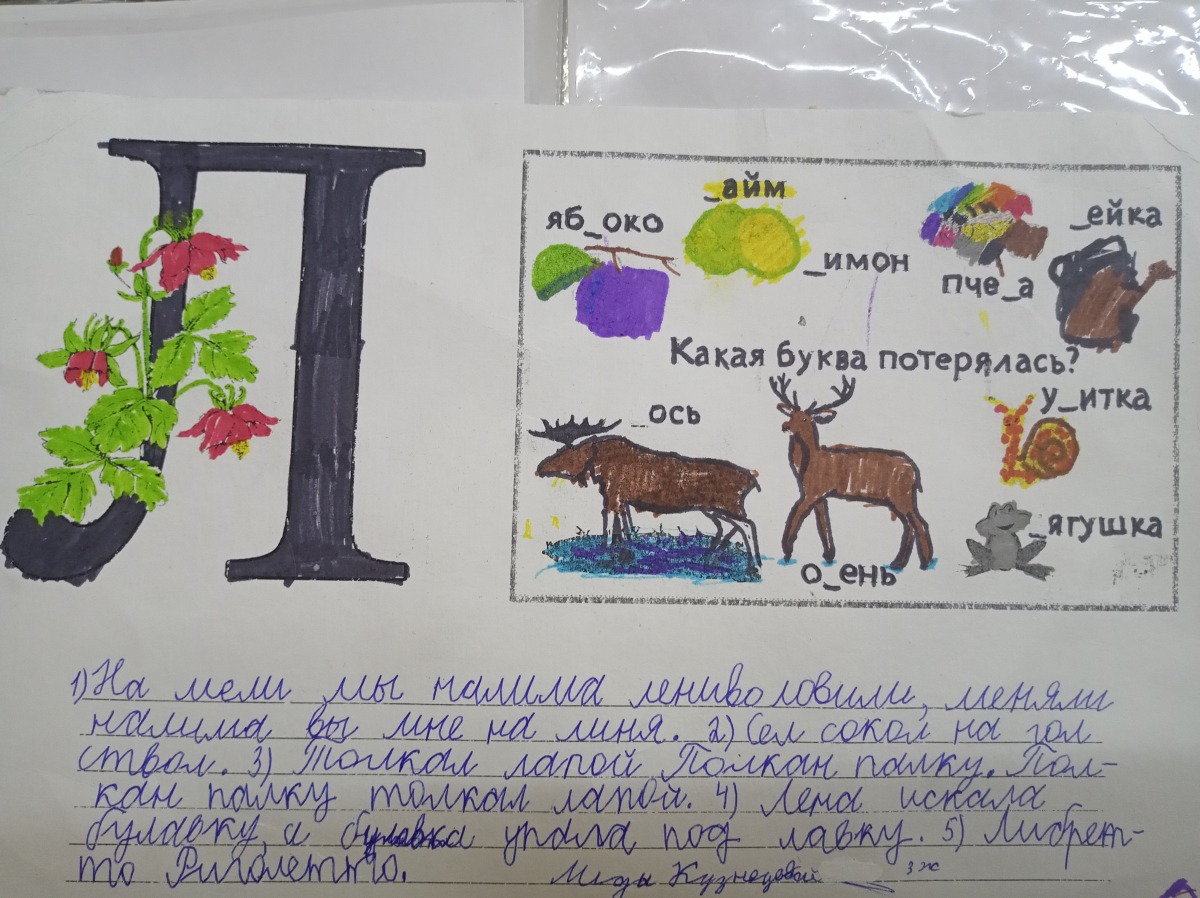 Л
_айм
яб_око
_ейка
_имон
пче_а
Какая буква потерялась?
_ось
у_итка
_ягушка
о_ень
1) На мели мы налима лениво ловили, меняли
налима вы мне на линя. 2) Сел сокол на гол
ствол. 3) Толкал лапой Полкан палку. Пол-
кан палку толкал лапой. 4) Лена искала
булавку, а булавка упала под лавку. 5) Либрет-
то Риголетто.
Лиды Кузнецовой 3 ж